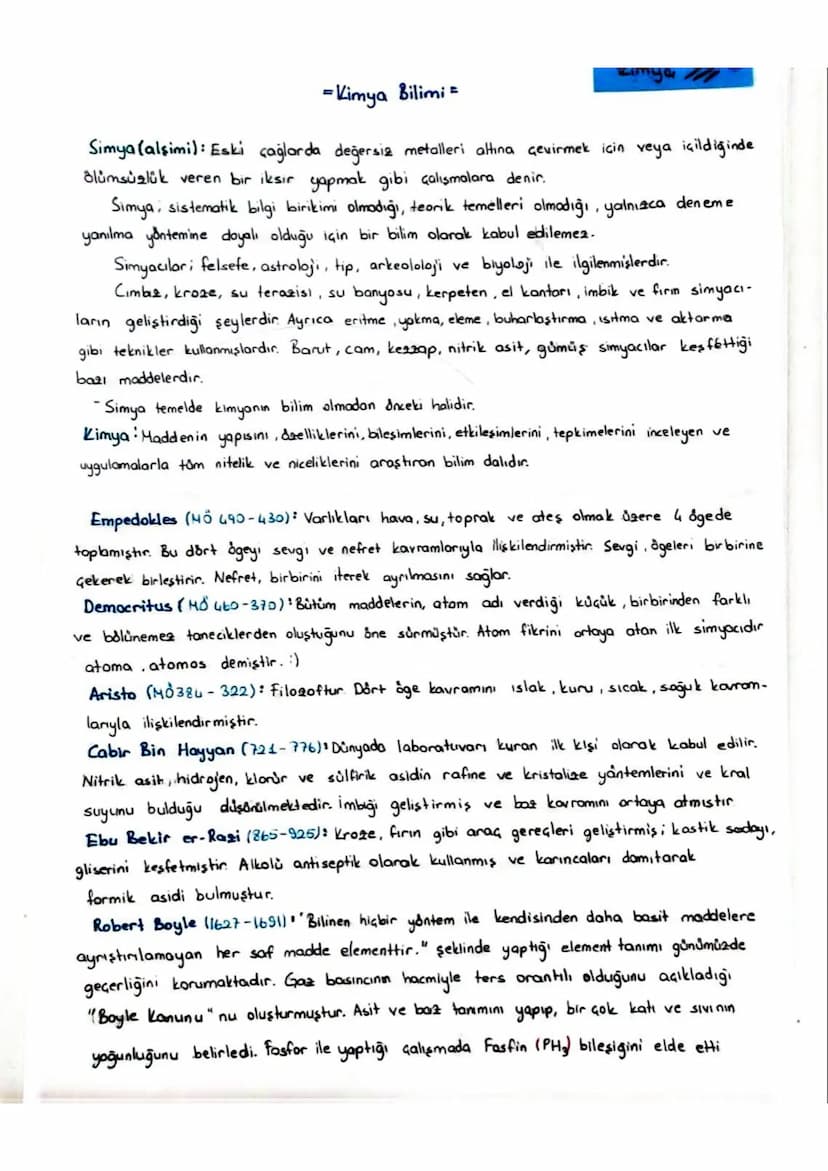 Kimya
=Kimya Bilimi=
Simya(alşimi): Eski çağlarda değersiz metalleri altına çevirmek için veya içildiğinde
ölümsüzlük veren bir iksir yapmak gibi çalışmalara denir.
Simya; sistematik bilgi birikimi olmadığı, teorik temelleri olmadığı, yalnızca deneme
yanılma yöntemine dayalı olduğu için bir bilim olarak kabul edilemez.
Simyacılar; felsefe, astroloji, tıp, arkeololoji ve biyoloji ile ilgilenmişlerdir.
Cımbız, kroze, su terazisi, su banyosu, kerpeten, el kantarı, imbik ve fırın simyacı-
ların geliştirdiği şeylerdir. Ayrıca eritme, yakma, eleme, buharlaştırma, ısıtma ve aktarma
gibi teknikler kullanmışlardır. Barut, cam, kezzap, nitrik asit, gümüş simyacılar keşfettiği
bazı maddelerdir.
- Simya temelde kimyanın bilim olmadan önceki halidir.
Kimya: Maddenin yapısını, özelliklerini, bileşimlerini, etkileşimlerini, tepkimelerini inceleyen ve
uygulamalarla tüm nitelik ve niceliklerini araştıran bilim dalıdır.
Empedokles (MÖ 490-430): Varlıkları hava, su, toprak ve ateş olmak üzere 4 ögede
toplamıştır. Bu dört ögeyi sevgi ve nefret kavramlarıyla ilişkilendirmiştir. Sevgi, ögeleri birbirine
çekerek birleştirir. Nefret, birbirini iterek ayrılmasını sağlar.
Democritus (MÖ 460-370): Bütüm maddelerin, atom adı verdiği küçük, birbirinden farklı
ve bölünemez taneciklerden oluştuğunu öne sürmüştür. Atom fikrini ortaya atan ilk simyacıdır
atoma, atomos demiştir. :)
Aristo (MÖ384 - 322): Filozoftur. Dört öge kavramını ıslak, kuru, sıcak, soğuk kavram-
larıyla ilişkilendirmiştir.
Cabir Bin Hayyan (721-776): Dünyada laboratuvarı kuran ilk kişi olarak kabul edilir.
Nitrik asit, hidrojen, klorür ve sülfirik asidin rafine ve kristalize yöntemlerini ve kral
suyunu bulduğu düşünülmektedir. İmbiği geliştirmiş ve baz kavramını ortaya atmıştır
Ebu Bekir er-Razi (865-925): Kroze, fırın gibi araç gereçleri geliştirmiş; kostik sodayı,
gliserini keşfetmiştir. Alkolü antiseptik olarak kullanmış ve karıncaları damıtarak
formik asidi bulmuştur.
Robert Boyle (1627-1691): "Bilinen hiçbir yöntem ile kendisinden daha basit maddelere
ayrıştırılamayan her saf madde elementtir." şeklinde yaptığı element tanımı günümüzde
geçerliğini korumaktadır. Gaz basıncının hacmiyle ters orantılı olduğunu açıkladığı
"Boyle Kanunu" nu oluşturmuştur. Asit ve baz tanımını yapıp, bir çok katı ve sıvının
yoğunluğunu belirledi. Fosfor ile yaptığı çalışmada Fosfin (PH₃) bileşiğini elde etti